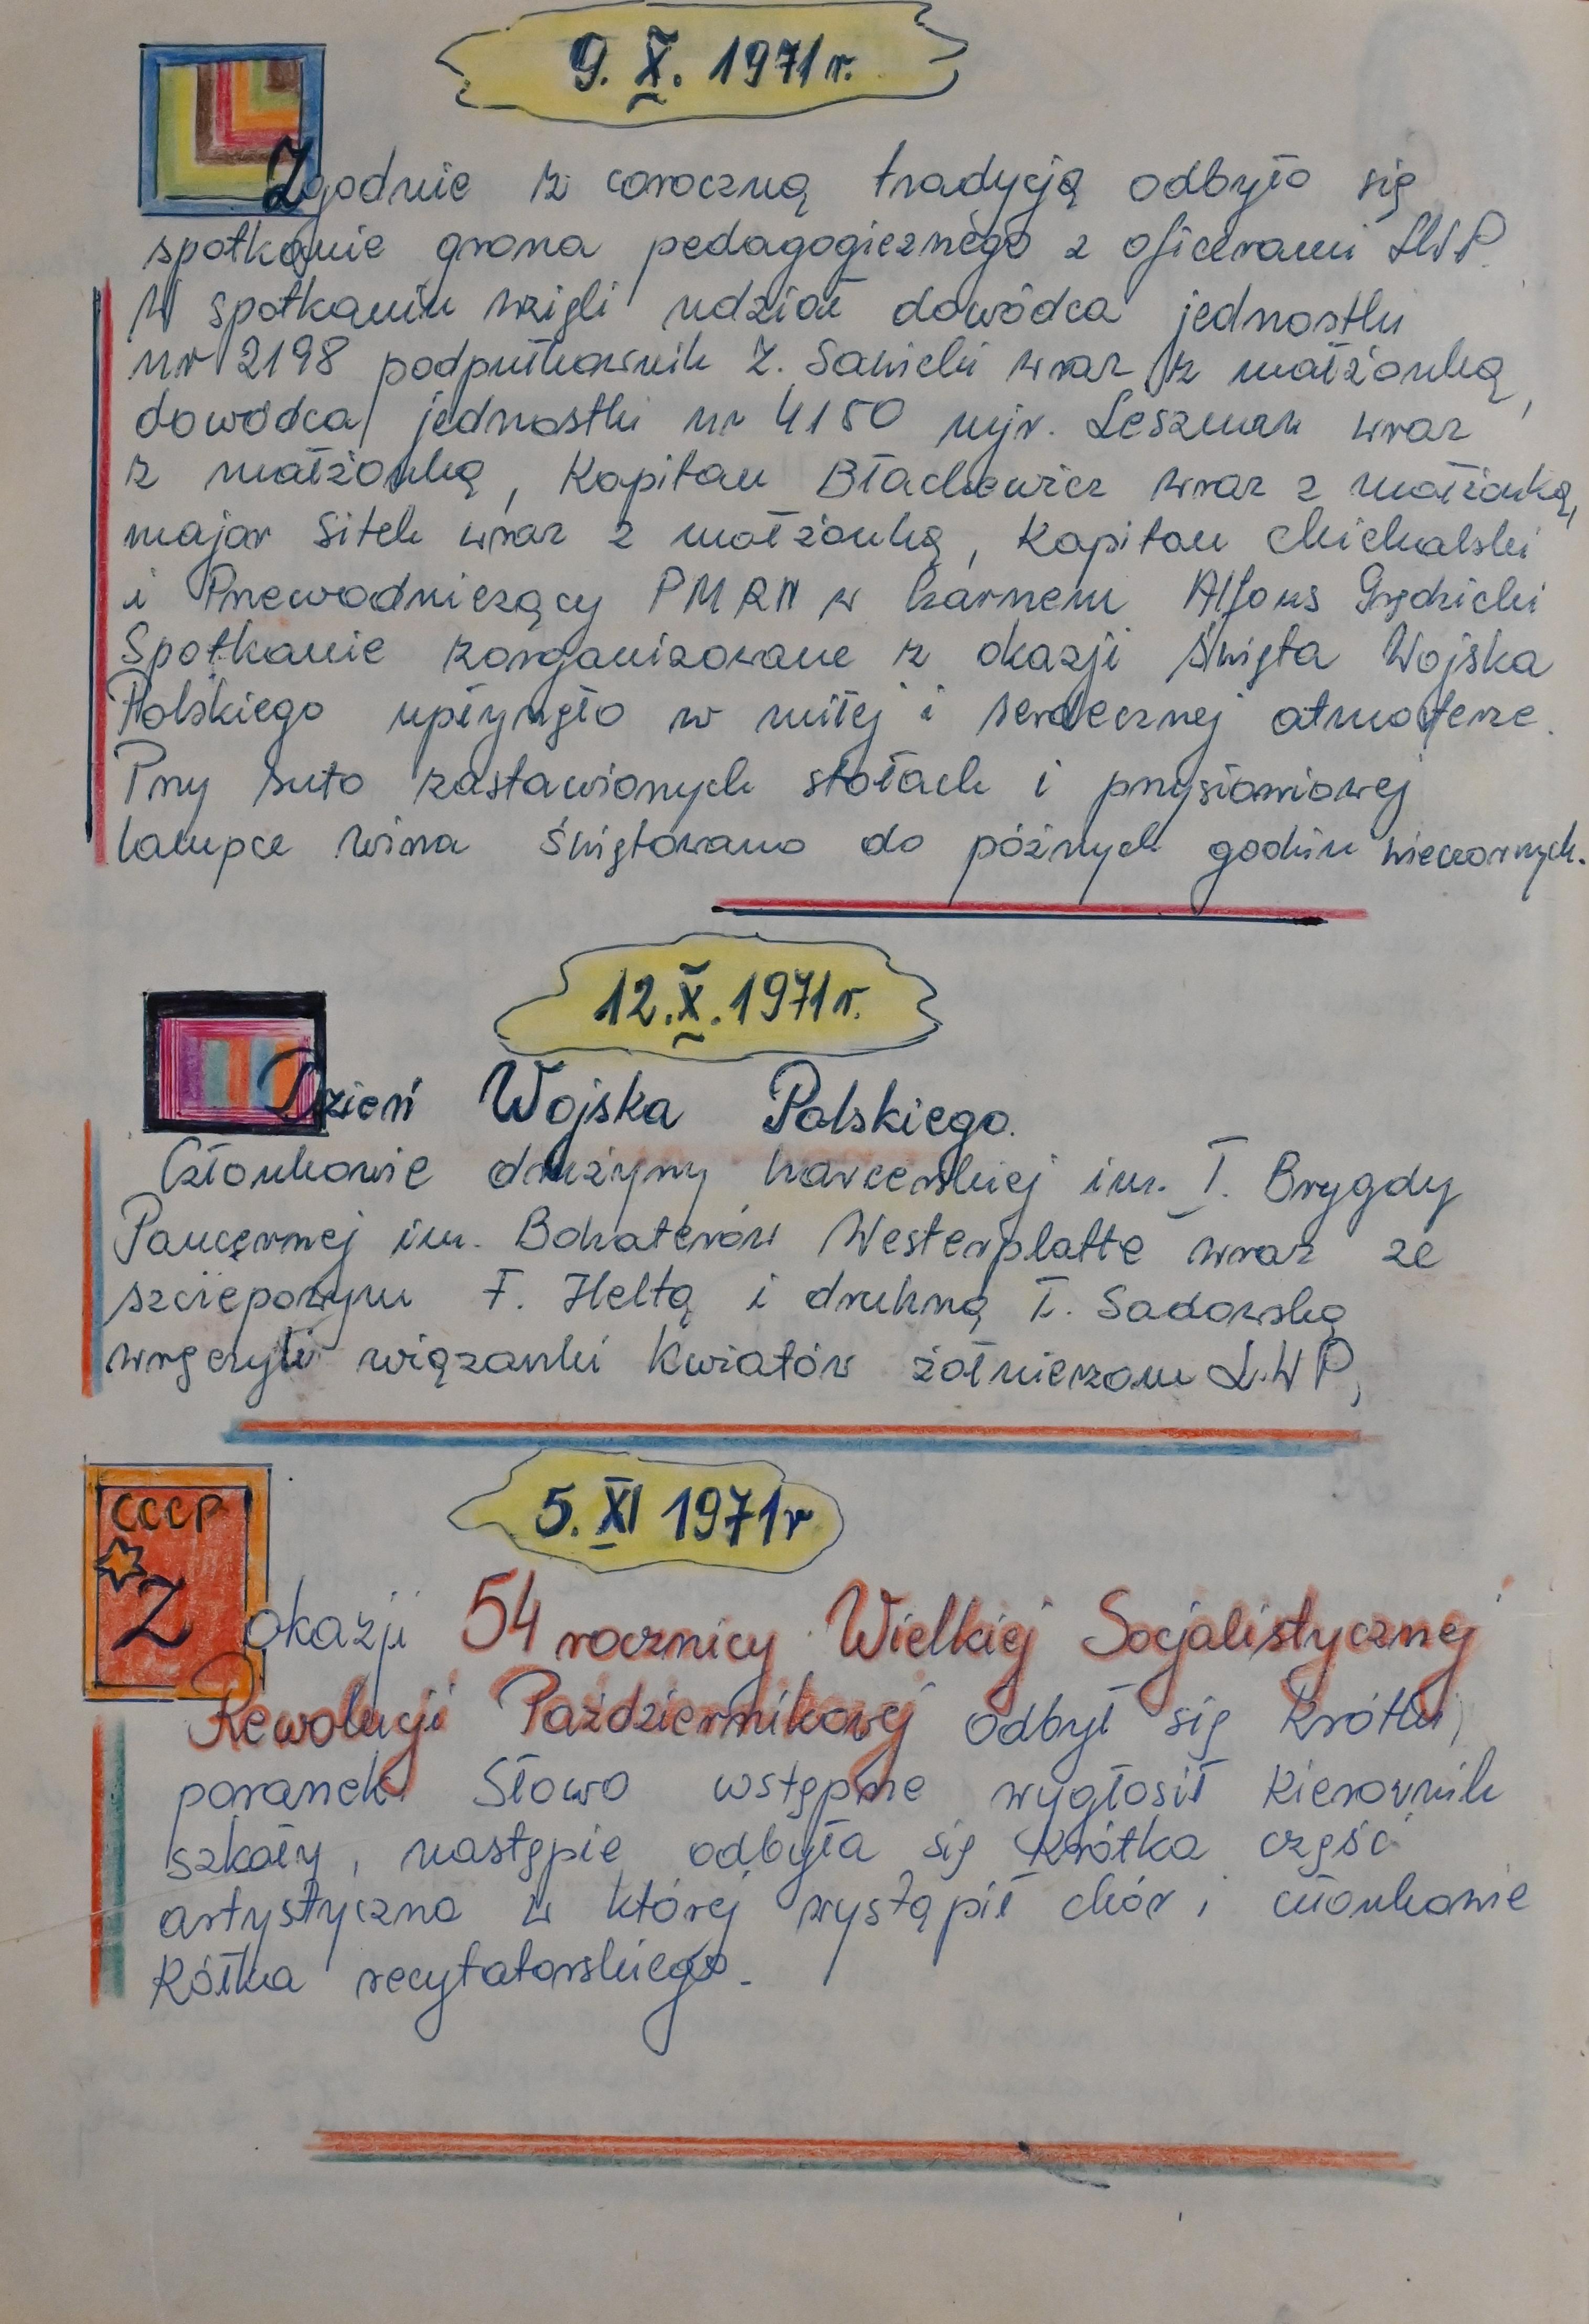 9. X. 1971 r.
Zgodnie z coroczną tradycją odbyło się
spotkanie grona pedagogicznego z oficerami LWP.
W spotkaniu wzięli udział dowódca jednostki
nr 2198 podpułkownik Z. Sawicki wraz z małżonką,
dowódca jednostki nr 4150 mjr. Leszman wraz
z małżonką, Kapitan Błachewicz wraz z małżonką,
major Sitek wraz z małżonką, Kapitan Michalski
i Przewodniczący PMRN w Czarnem Alfons Grędzicki
Spotkanie zorganizowane z okazji Święta Wojska
Polskiego upłynęło w miłej i serdecznej atmosferze.
Przy suto zastawionych stołach i przysłowiowej
lampce wina świętowano do późnych godzin wieczornych.
12. X. 1971 r.
Dzień Wojska Polskiego.
Członkowie drużyny harcerskiej im. I. Brygdy
Pancernej im. Bohaterów Westerplatte wraz ze
szczepowym F. Heltą i druhną I. Sadowską
wręczyli wiązanki kwiatów żołnierzom L.WP,
CCCP
5. XI 1971 r
Z okazji 54 rocznicy Wielkiej Socjalistycznej
Rewolucji Październikowej odbył się krótki
poranek. Słowo wstępne wygłosił Kierownik
szkoły, następie odbyła się krótka część
artystyczna w której wystąpił chór i członkowie
Kółka recytatorskiego.